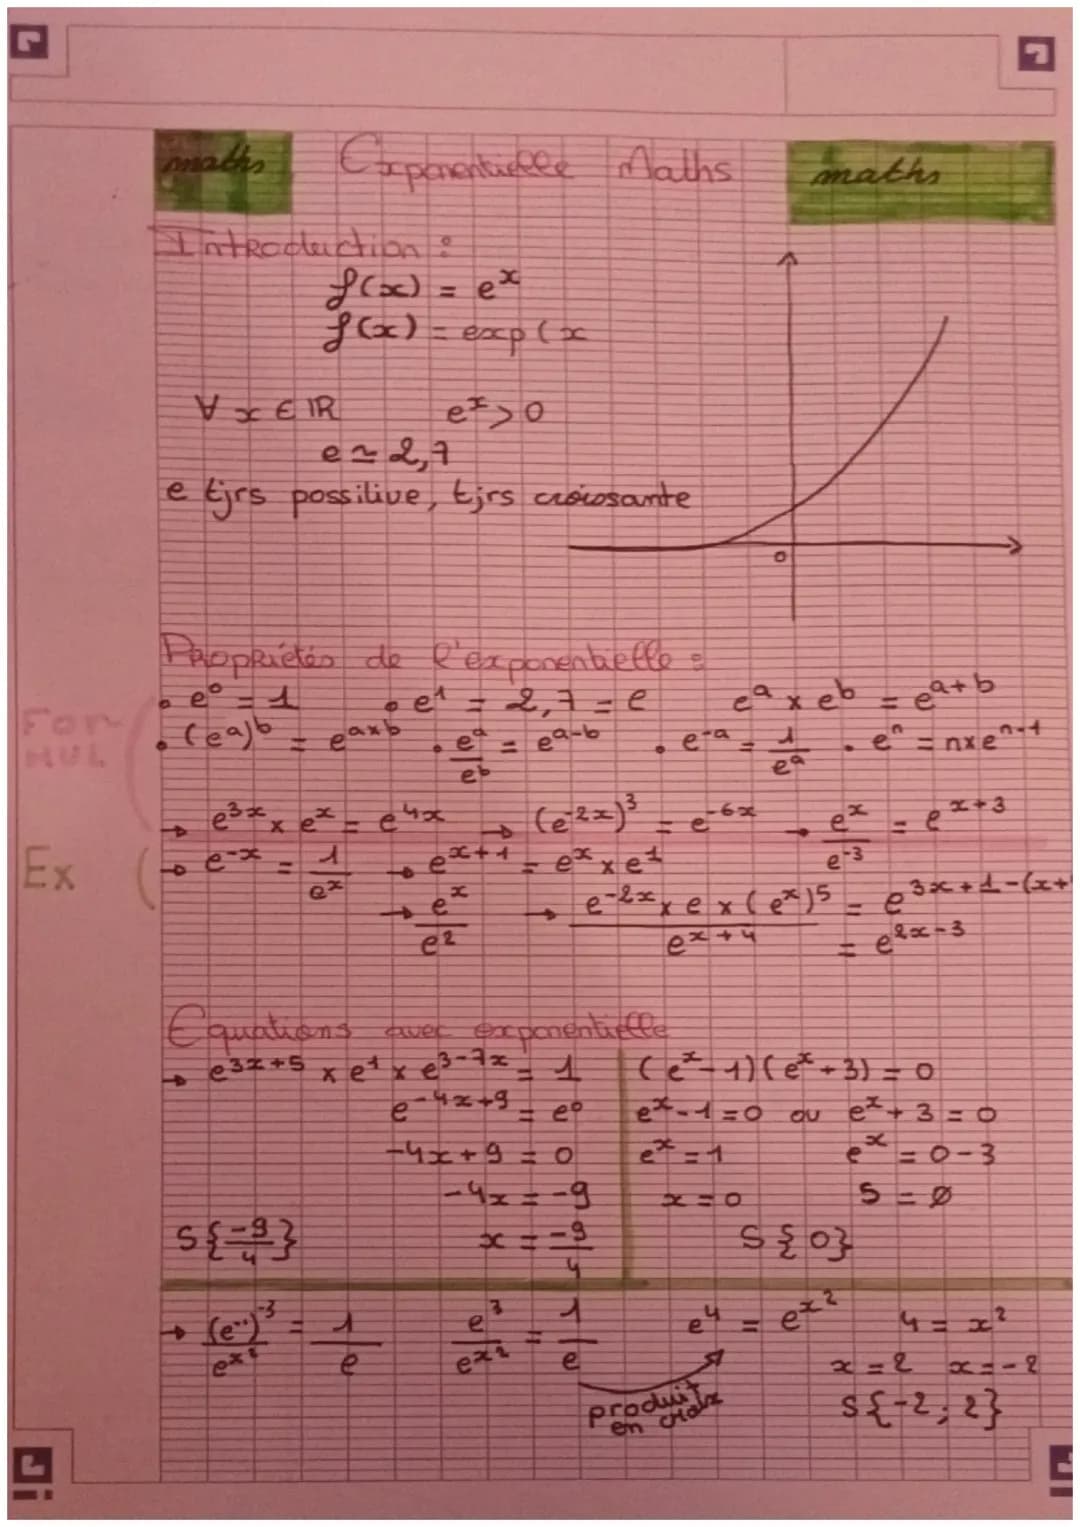 maths Exponentielle Maths maths
Introduction :
f(x) = e^x
f(x) = exp(x
∀ x ∈ ℝ e^x > 0
e ≃ 2,7
e tjrs possilive, tjrs croissante
0
Propriétés de l'exponentielle :
For-
MUL
• e^0 = 1 • e^1 = 2,7 = e e^a × e^b = e^{a+b}
• (e^a)^b = e^{a×b} • e^a/e^b = e^{a-b} • e^{-a} = 1/e^a • e^n = n×e^{n-1}
Ex
→ e^{3x} × e^x = e^{4x} → (e^{-2x})^3 = e^{-6x} → e^x/e^{-3} = e^{x+3}
→ e^{-x} = 1/e^x → e^{x+1} = e^x × e^1
→ e^x/e^2 → e^{-2x} × e × (e^x)^5/e^{x+4} = e^{3x+1-(x+
= e^{2x-3}
Equations avec exponentielle
→ e^{3x+5} × e^1 × e^{3-7x} = 1
e^{-4x+9} = e^0
-4x+9 = 0
-4x = -9
S{-9/4} x = -9/4
(e^x-1)(e^x+3) = 0
e^x-1=0 ou e^x+3=0
e^x=1 e^x = 0-3
x=0 S = ∅
S{0}
→ (e^{..})^{-3}/e^{x^2} = 1/e e^3/e^{x^2} = 1/e e^4 = e^{x^2} 4 = x^2
x=2 x=-2
produit
en croix
S{-2; 2}